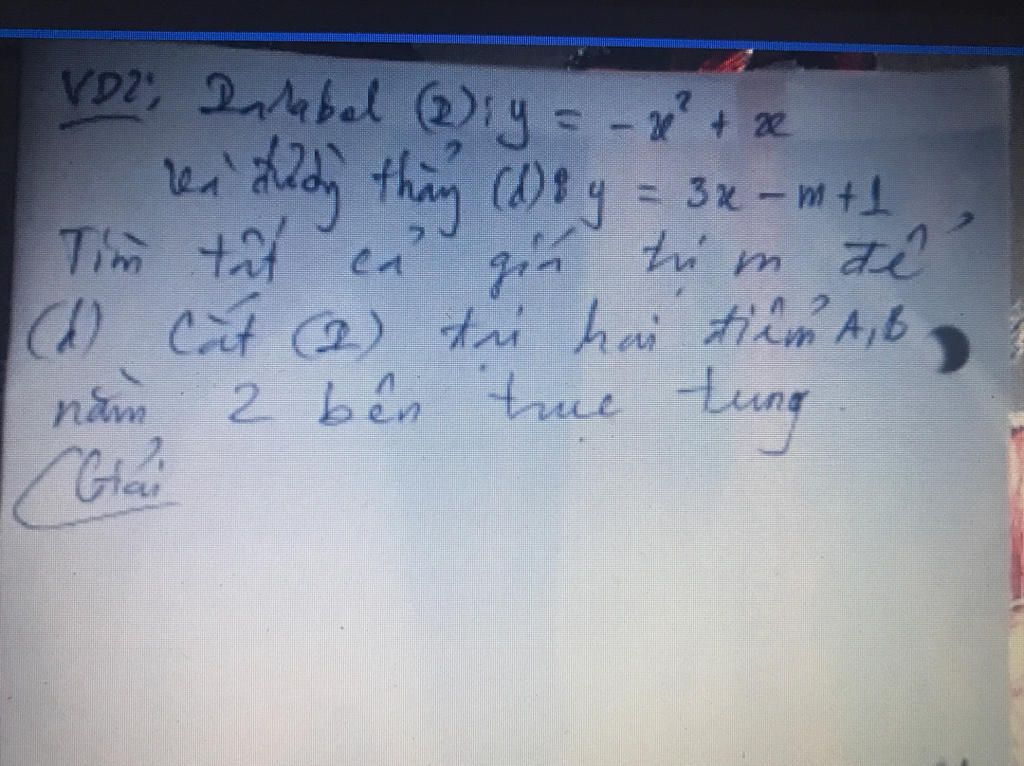 VD2: Parabol (P): y = -x² + x
và đường thẳng (d): y = 3x - m + 1,
Tìm tất cả giá trị m để
(d) cắt (P) tại hai điểm A, B
nằm 2 bên trục tung.
Giải